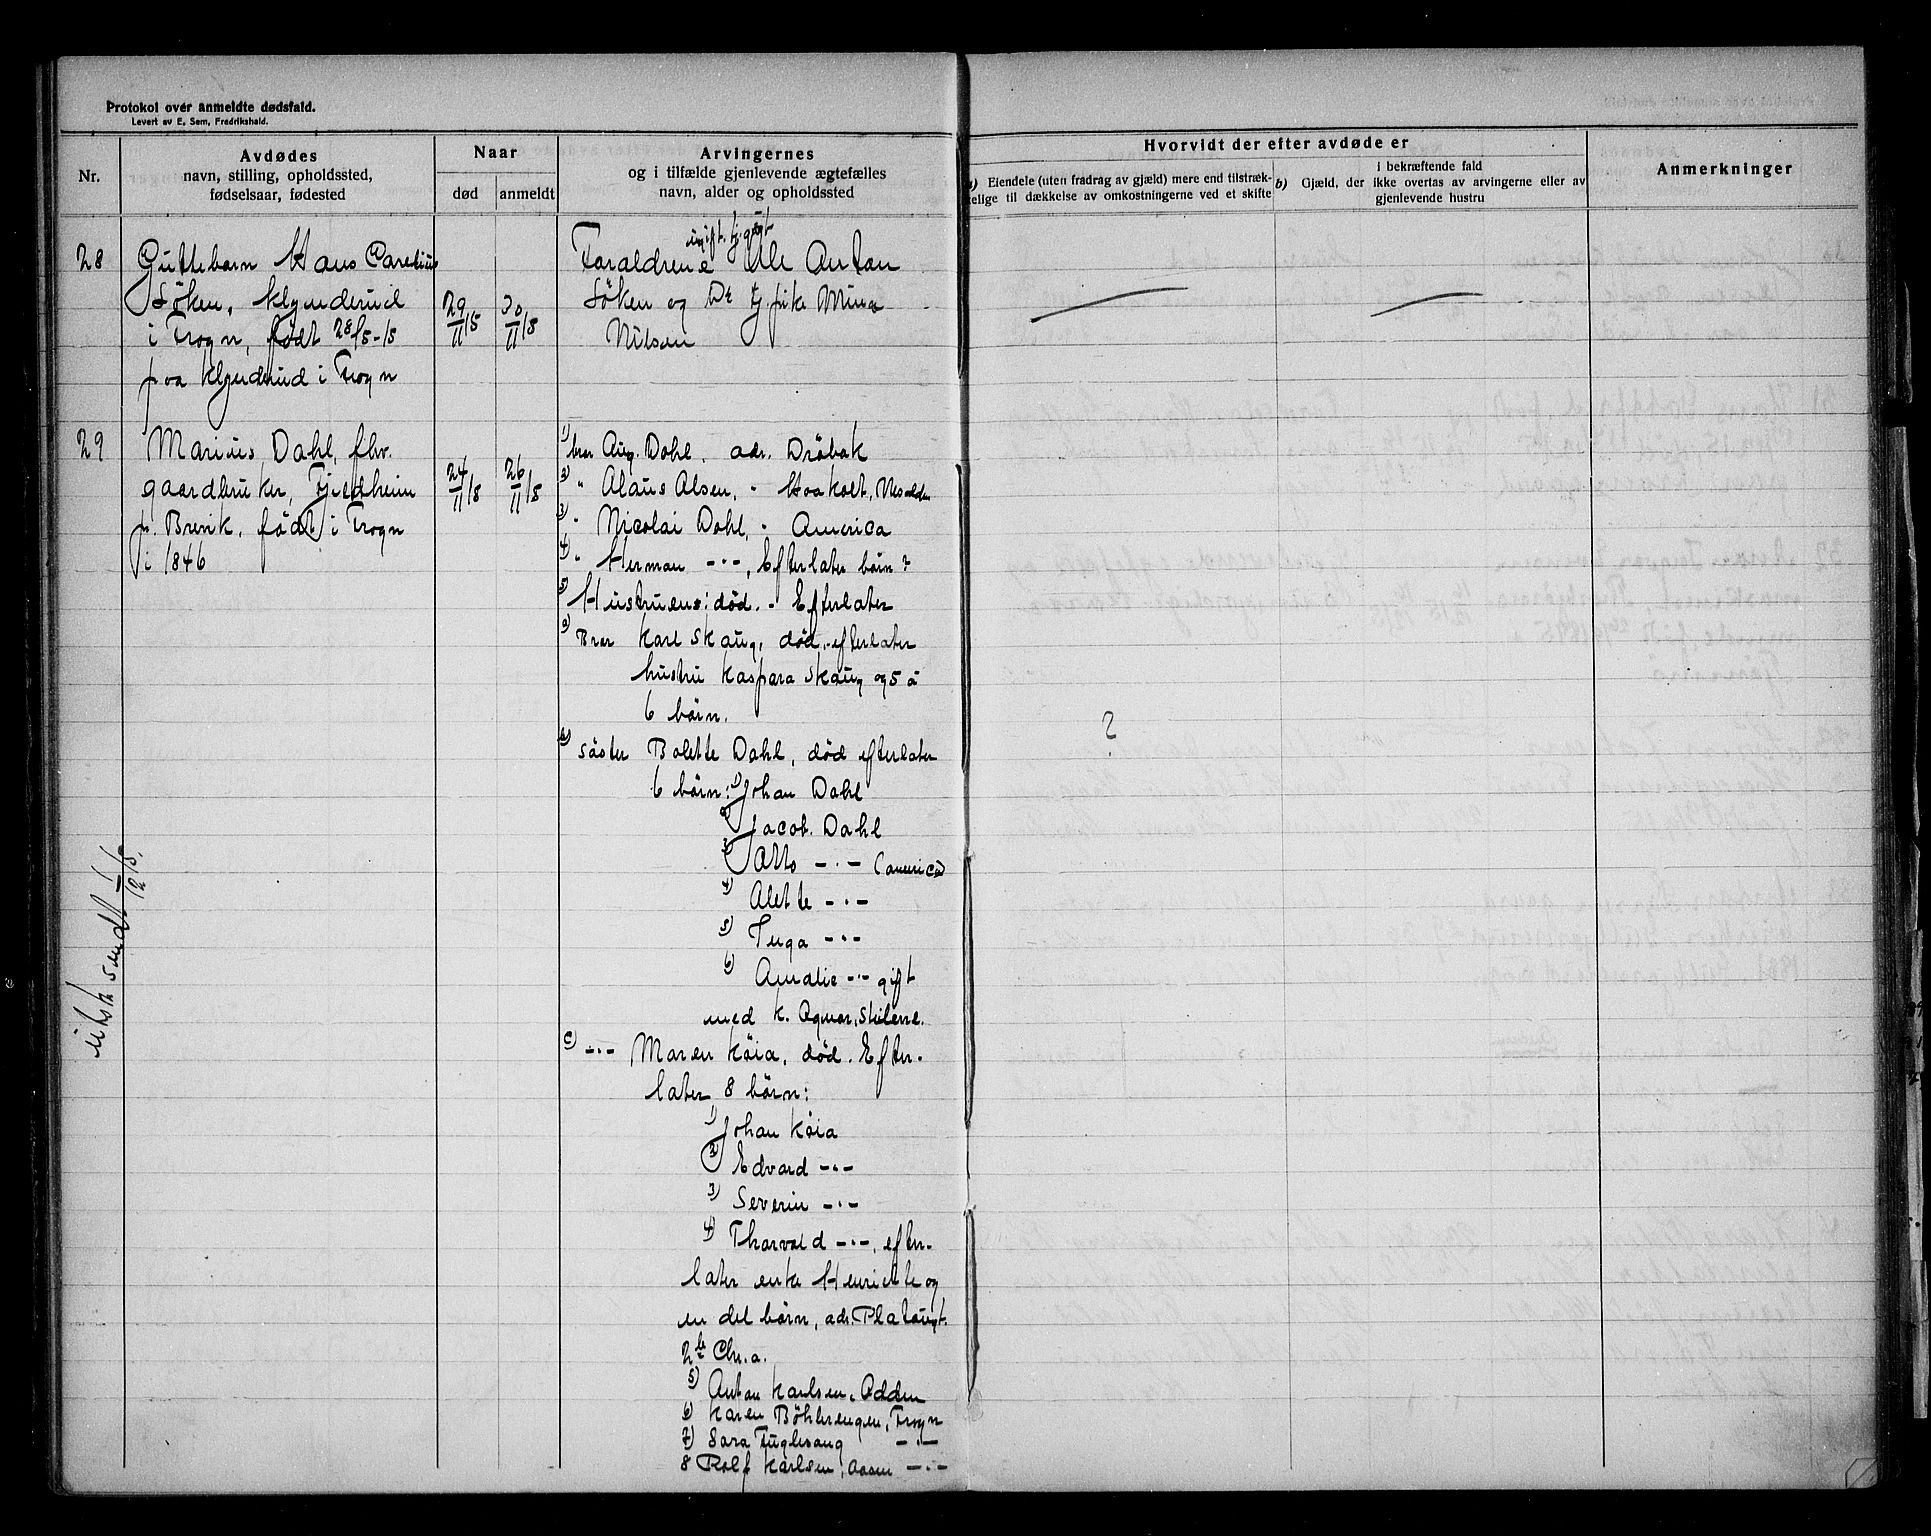 Protokol over anmeldte dødsfald.
Levert av E. Sem, Fredrikshald.
Nr.
Avdødes
navn, stilling, opholdssted,
fødselsaar, fødested
Naar
død
anmeldt
Arvingernes
og i tilfælde gjenlevende ægtefælles
navn, alder og opholdssted
Hvorvidt der efter avdøde er
a) Eiendele (uten fradrag av gjæld) mere end tilstræk-
kelige til dækkelse av omkostningerne ved et skifte
b) Gjæld, der i bekræftende fald
ikke overtas av arvingerne eller av
gjenlevende hustru
Anmerkninger
28
Guttebarn Hans
Søken, Klynderud
i Frogn, født 28/5-15
paa Klynderud i Frogn
29/11 15
30/11 15
ugift tj.gut
Foraldrene Ole Anton
Søken og tj.pike Mina
Nilsen
29
Marius Dahl, fhv.
gaardbruker, Fjeldheim
p. Brevik, født i Frogn
i 1846
24/11 15
26/11 15
1) bror Aug. Dahl, adr. Drøbak
2) " Alaus Olsen, " Haakolt, Nesodden
3) " Nicolai Dahl, " America
4) " Herman -"-, Efterlater børn?
5) Hustruens: død. - Efterlater
a) Bror Karl Skaug, død, efterlater
hustru Kaspara Skaug og 5 à
6 børn.
?
b) søster Bolette Dahl, død efterlater
6 børn: 1) Johan Dahl
2) Jacob Dahl
3) Otto -"- (America)
4) Alette -"-
5) Inga -"-
6) Amalie -"- gift
med K.
c) -"- Maren Køia, død. Efter-
later 8 børn:
1) Johan Køia
2) Edvard -"-
3) Severin -"-
4) Thorvald -"-, efter-
later enke Henriette og
en del børn, adr. Platougt.
2 b Chr.a.
5) Anton Karlsen, Odden
6) Karen Bøhlerengen, Frogn
7) Sara Fuglesang -"-
8 Rolf Karlsen, Aasen -"-
utskr. sendt 1/12 15.